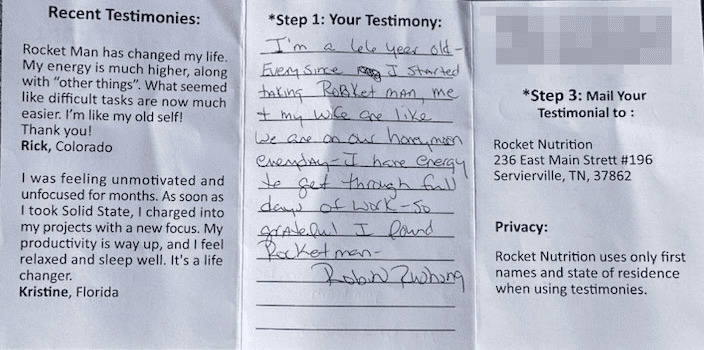 Recent Testimonies:
Rocket Man has changed my life.
My energy is much higher, along
with “other things”. What seemed
like difficult tasks are now much
easier. I’m like my old self!
Thank you!
Rick, Colorado
I was feeling unmotivated and
unfocused for months. As soon as
I took Solid State, I charged into
my projects with a new focus. My
productivity is way up, and I feel
relaxed and sleep well. It's a life
changer.
Kristine, Florida
*Step 1: Your Testimony:
I'm a 66 year old-
Every since I started
taking Rocket man, me
+ my wife are like
we are on our honeymoon
everyday - I have energy
to get through full
days of work - so
grateful I found
Rocketman -
*Step 3: Mail Your
Testimonial to :
Rocket Nutrition
236 East Main Strett #196
Servierville, TN, 37862
Privacy:
Rocket Nutrition uses only first
names and state of residence
when using testimonies.